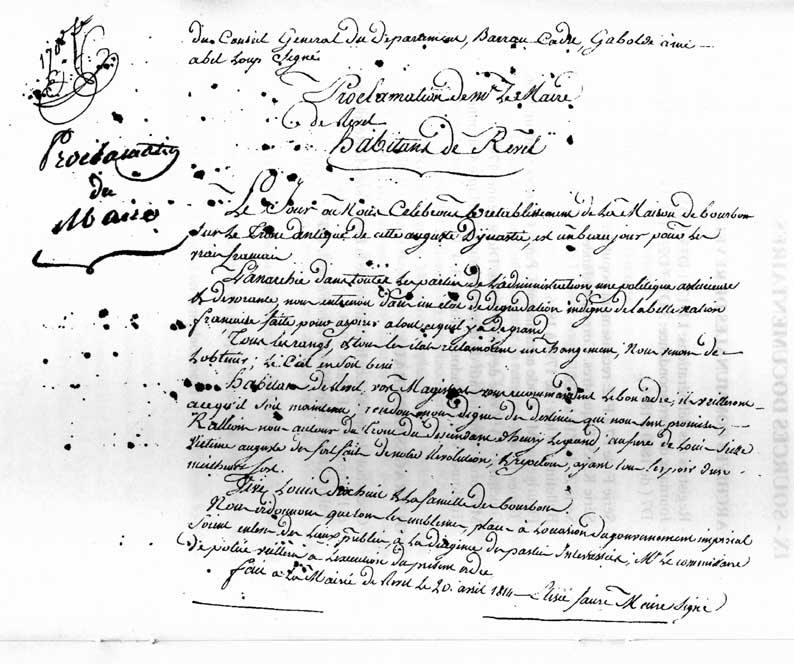 du Conseil General du departement, Barrau Cadre, Gabolde ainé
abel Loup Signé
Proclamation de Mr. Le Maire
de Revel
habitans de Revel
Proclamation
du
Maire
Le Jour ou Nous Celebrons Le retablissement de La Maison de bourbon
sur Le trone antique de cette auguste Dynastie, est un beau jour pour Les
vrais francais
L'anarchie dans toutes Les parties de L'administration, une politique
& devorante, nous entrenoit dans un état de degradation indigne de La belle nation
francaise faite pour aspirer a tout ce qu'il y a de grand
Tous Les rangs, & tous Les états reclamoient un changement; Nous venons de
L'obtenir; Le Ciel en soit beni
habitans de Revel, vos Magistrats vous recommandent Le bon ordre; ils veilleront
a ce qu'il soit maintenu, rendons nous dignes des destinées qui nous sont promises,
Rallions nous autour du trone du descendant d'henry Le grand, au frere de Louis Seize
victime auguste des forfaits de notre Revolution, & repetons, ayant tous L'espoir d'un
meilleur sort.
Vive Louis dix huit & La famille des bourbons.
Nous ordonnons que tous Les emblemes, placés à L'occasion du gouvernement imperial
soient enlevés des Lieux publics, à La diligence des parties Interessées, Mr. Le commissaire
de police veillera a L'execution du présent ordre
fait a La Mairie de Revel Le 20. avril 1814 faure Maire Signé